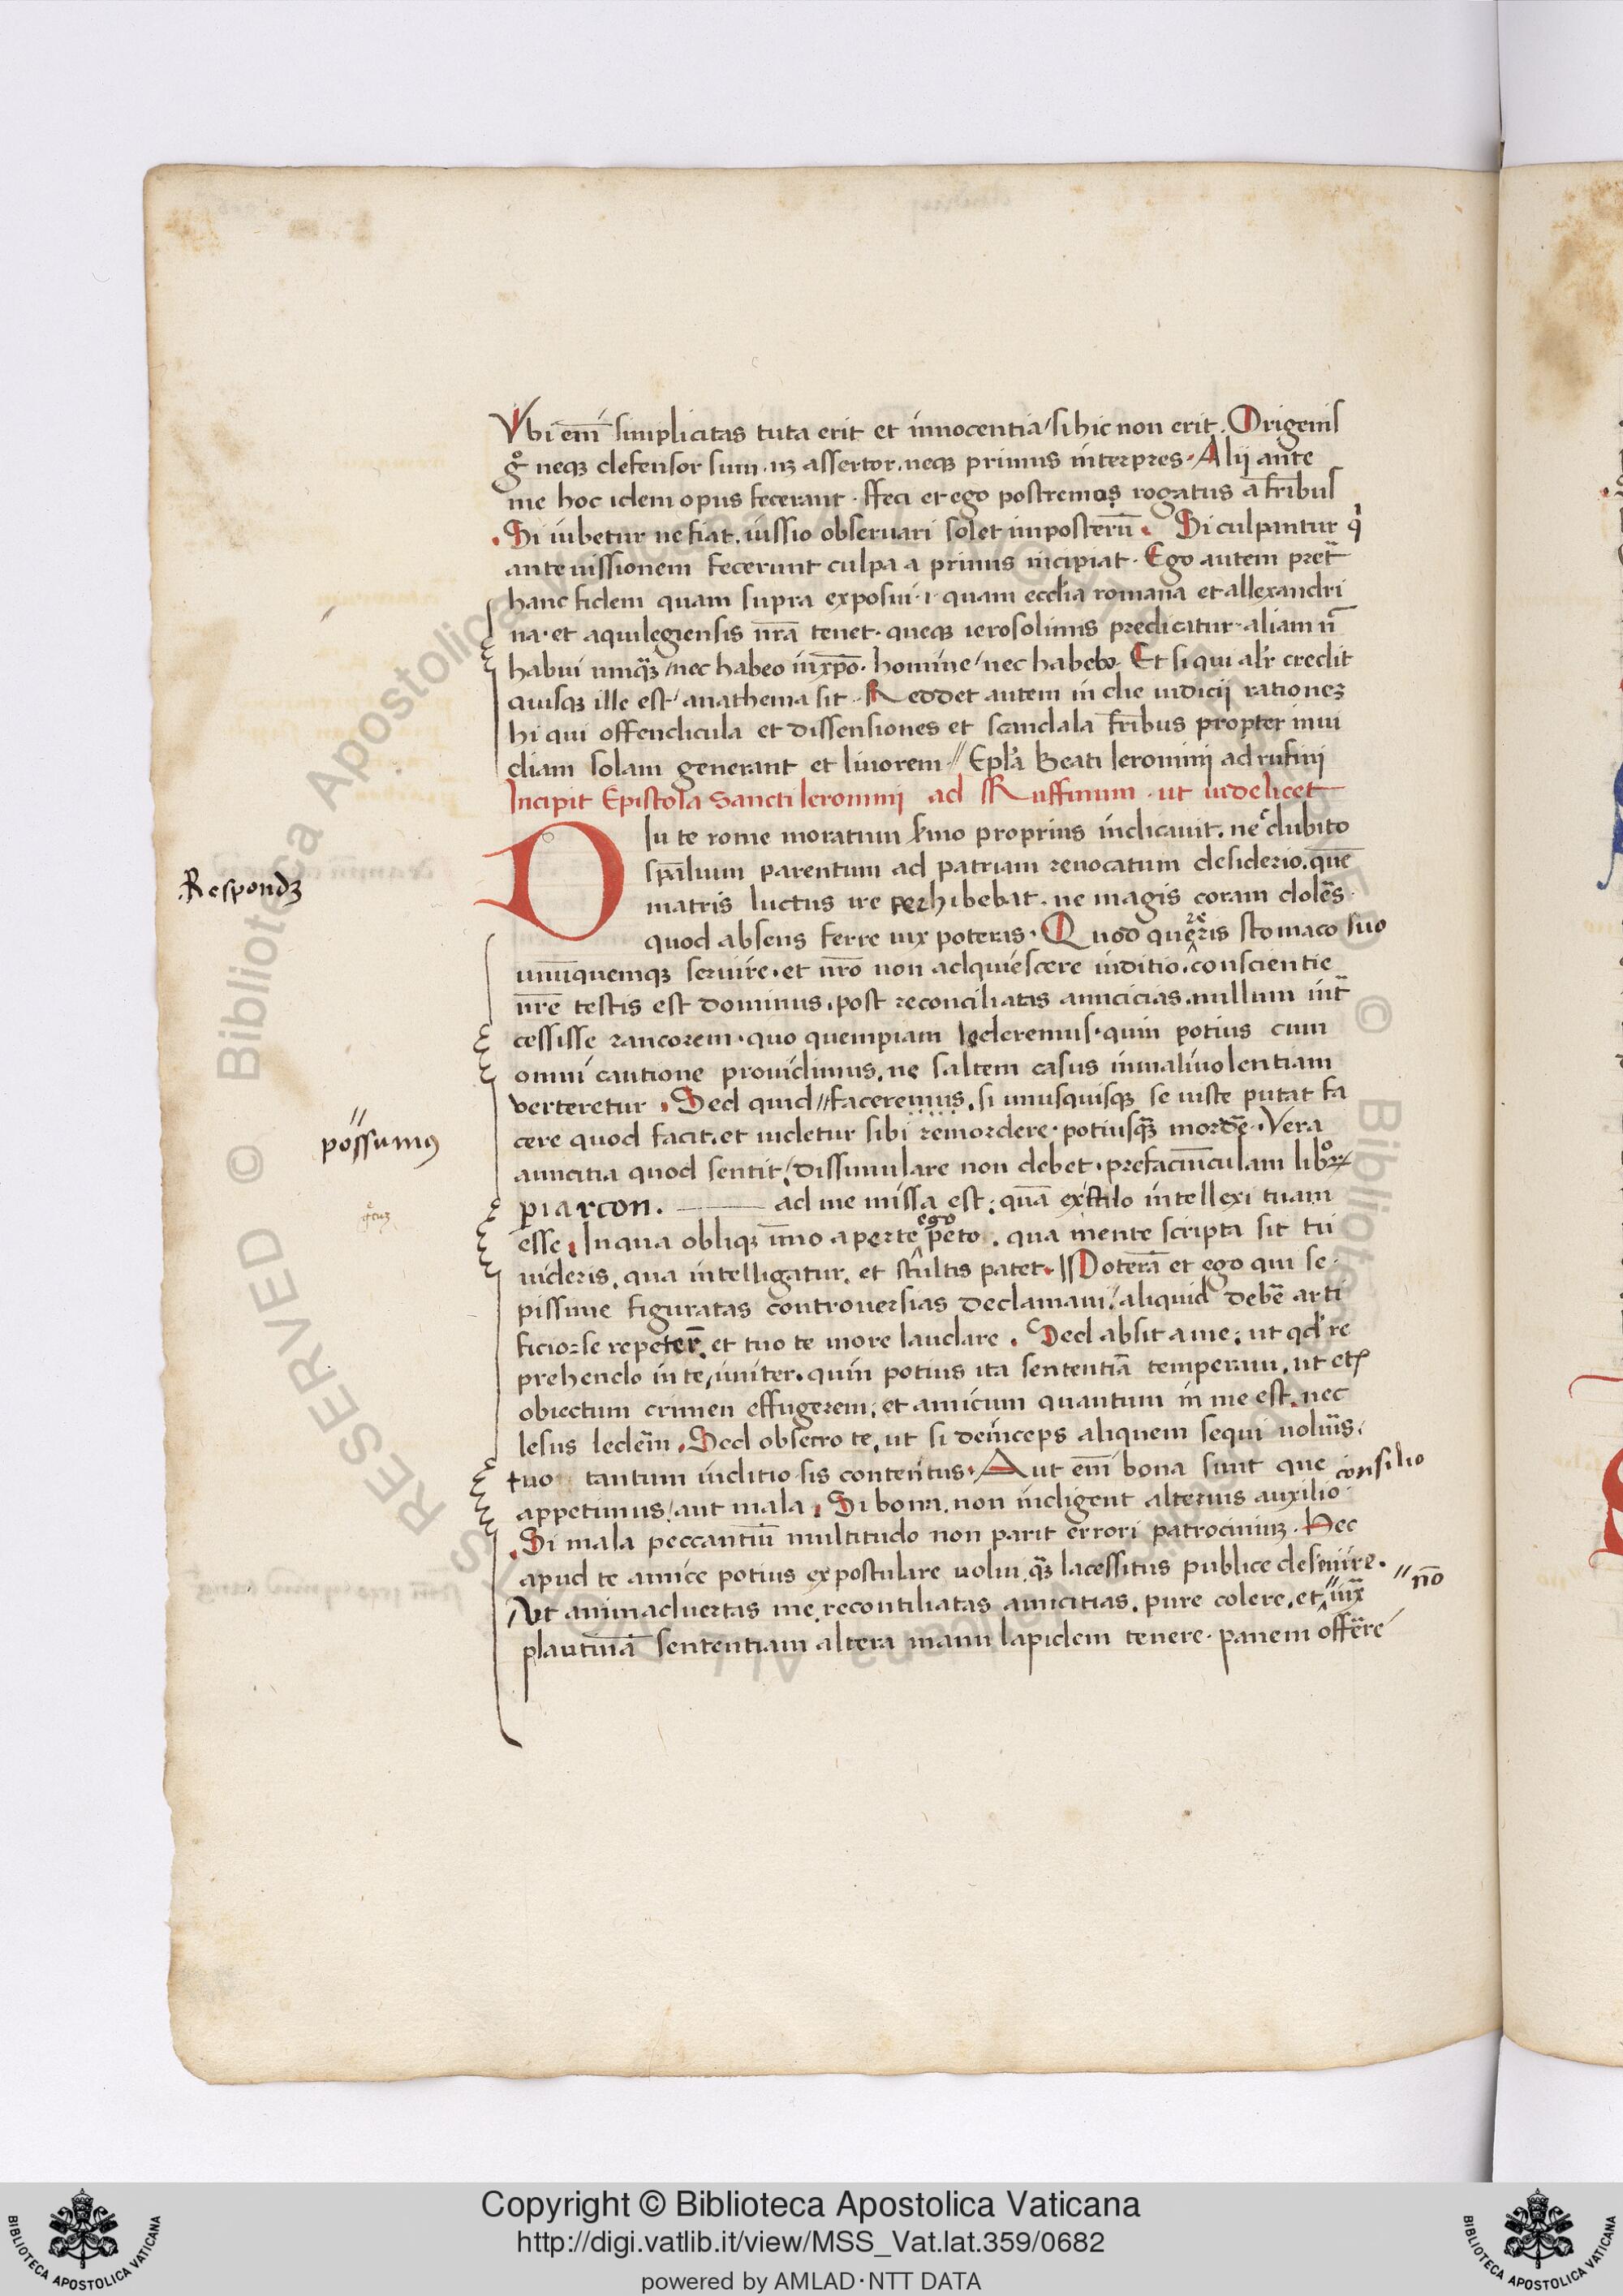 Vbi em̄ simplicitas tuta erit et innocentia / si hic non erit. Origenis
gͦ neqꝫ defensor sum. nꝫ assertor. neqꝫ primus interpres. Alij ante
me hoc idem opus fecerant. ffeci et ego postremos rogatus a fr̄ibus
Si iubetur ne fiat. iussio obseruari solet imposterū. Si culpantur qͥ
ante iussionem fecerunt culpa a primis incipiat. Ego autem pret̄
hanc fidem quam supra exposui .i. quam eccl̄ia romana et allexandri
na. et aquilegiensis nr̄a tenet. queqꝫ ierosolimis predicatur. aliam n̄
habui nunqꝫ / nec habeo in xp̄o. homine / nec habebo. Et si qui al'r credit
quisqꝫ ille est / anathema sit. Reddet autem in die iudicij rationeꝫ
hi qui offendicula et dissensiones et scandala fr̄ibus propter inui
diam solam generant et liuorem // Epl'a Beati Ieronimi ad rufini
Incipit Epistola Sancti Ieronimi ad Ruffinum. ut uidelicet
Diu te rome moratum s̄mo proprius indicauit. neͨ dubito
sp̄alium parentum ad patriam reuocatum desiderio. quē
matris luctus ire perhibebat. ne magis coram dolēs
Respondꝫ
quod absens ferre uix poteras. Quod queris stomaco suo
unūquemqꝫ seruire. et nr̄o non adquiescere iuditio. conscientie
nr̄e testis est dominus. post reconciliatas amicicias. nullum int̄
cessisse rancorem. quo quempiam lederemus. quin potius cum
omni cautione prouidimus. ne saltem casus in maliuolentiam
verteretur. Sed quid // faceremus. si unusquisqꝫ se iuste putat fa
// possumus
cere quod facit. et uidetur sibi remordere. potiusqꝫ mordē. Vera
amicitia quod sentit / dissimulare non debet. prefaciūculam libroꝝ
piarcon. ad me missa est. quā ex stilo intellexi tuam
esse. In qua obliqꝫ īmo aperte ego peto. qua mente scripta sit tu
uideris. qua intelligatur. et stultis patet. // Poterā et ego qui se
pissime figuratas controuersias declamaui / aliquid debē arti
ficiorse repeter̄. et tuo te more laudare. Sed absit a me. ut qd' re
prehendo in te / imiter. quin potius ita sententiā temperaui. ut et
obiectum crimen effugerem. et amicum quantum in me est. nec
lesus ledem̄. Sed obsecro te. ut si deinceps aliquem sequi uolūs.
tuo tantum iuditio sis contentus. Aut em̄ bona sunt que consilio
appetimus / aut mala. Si bona. non indigent alterius auxilio.
Si mala peccantiū multitudo non parit errori patrociniuꝫ. Hec
apud te amice potius expostulare uolui. qꝫ lacessitus publice deseuire.
Vt animaduertas me recontiliatas amicitias. pure colere. et // iux̄ // nō
plautinā sententiam altera manu lapidem tenere. panem offerre
Copyright © Biblioteca Apostolica Vaticana
http://digi.vatlib.it/view/MSS_Vat.lat.359/0682
powered by AMLAD·NTT DATA